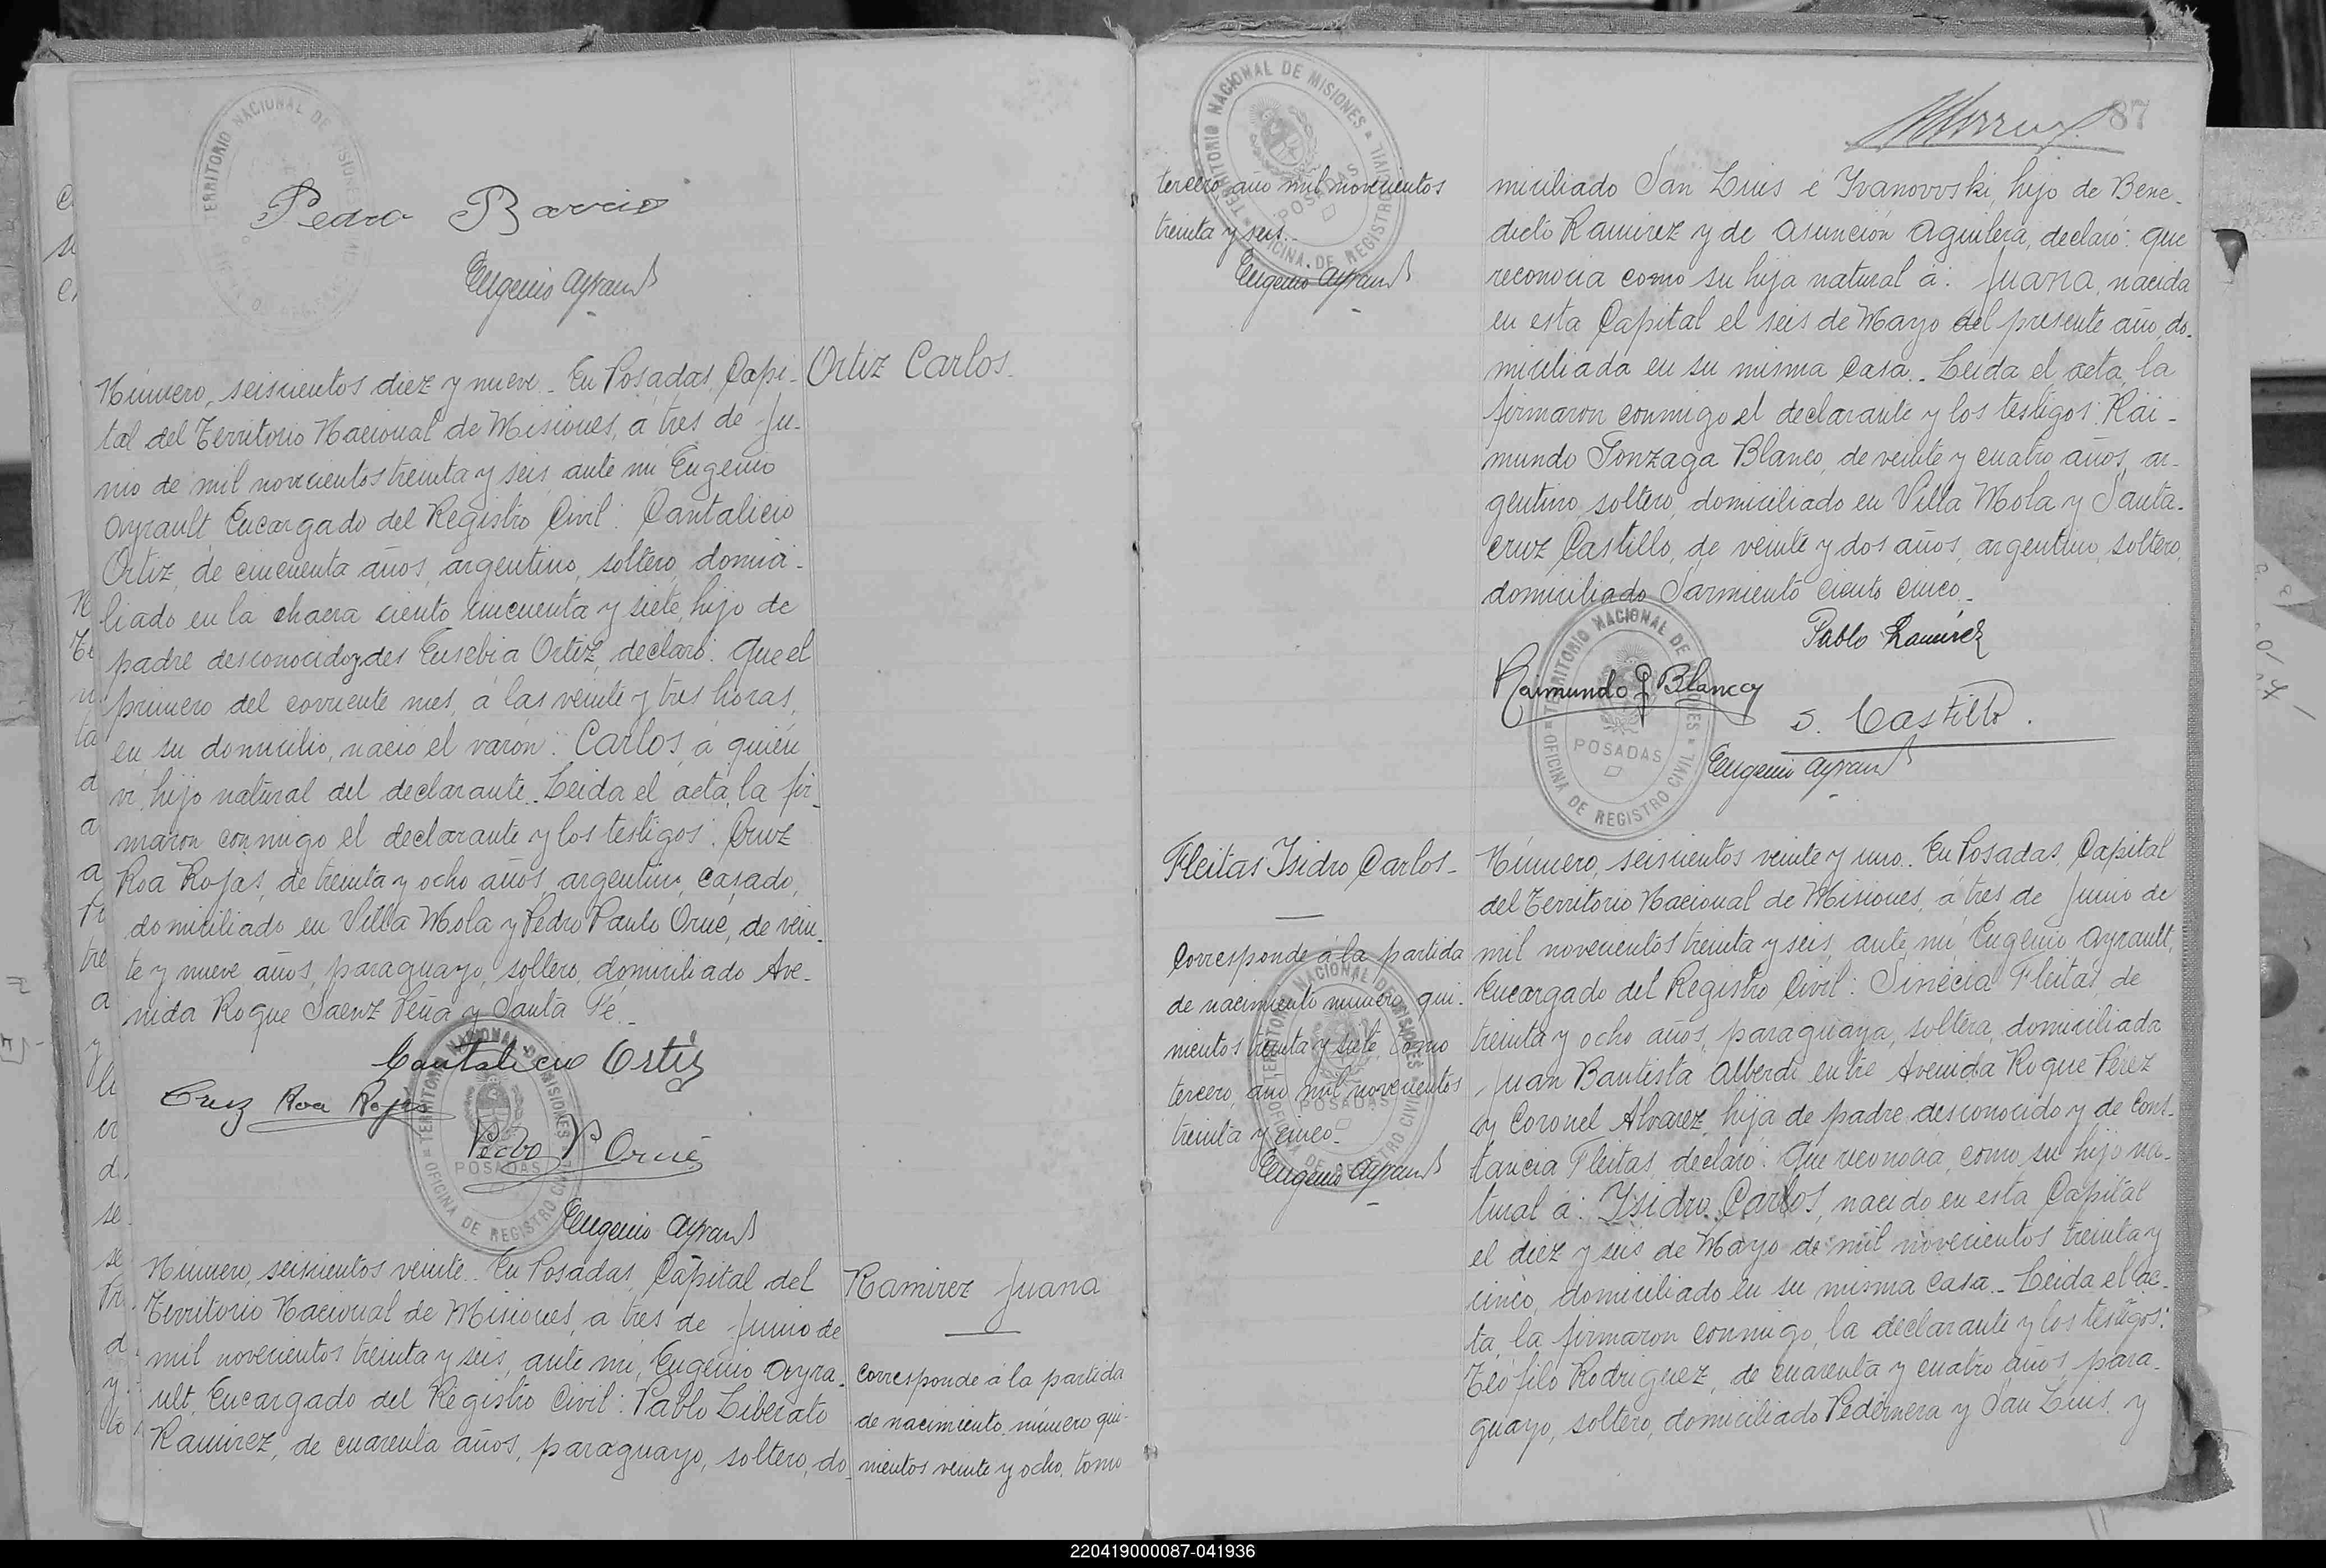 TERRITORIO NACIONAL DE MISIONES
Pedro Barrios
Eugenio Ayrault
Ortiz Carlos.
Número, seiscientos diez y nueve.. En Posadas, Capi-
tal del Territorio Nacional de Misiones, á tres de Ju-
nio de mil novecientos treinta y seis, ante mi Eugenio
Ayrault, Encargado del Registro Civil: Cantalicio
Ortiz, de cincuenta años, argentino, soltero, domici-
liado en la chacra ciento cincuenta y siete, hijo de
padre desconocido y des Eusebia Ortiz, declaró: Que el
primero del corriente mes, á las veinte y tres horas,
en su domicilio, nació el varón: Carlos, á quién
ví, hijo natural del declarante.. Leida el acta, la fir-
maron conmigo el declarante y los testigos: Cruz
Roa Rojas, de treinta y ocho años, argentino, casado,
domiciliado en Villa Mola y Pedro Paulo Orué, de vein-
te y nueve años, paraguayo, soltero, domiciliado Ave-
nida Roque Saenz Peña y Santa Fé..
Cantalicio Ortiz
Cruz Roa Rojas
Pedro P Orué
TERRITORIO NACIONAL DE MISIONES
POSADAS
OFICINA DE REGISTRO CIVIL
Eugenio Ayrault
Ramirez Juana
Número, seiscientos veinte.. En Posadas, Capital del
Territorio Nacional de Misiones, a tres de Junio de
mil novecientos treinta y seis, ante mi, Eugenio Ayra-
ult, Encargado del Registro Civil: Pablo Liberato
Ramirez, de cuarenta años, paraguayo, soltero, do
Corresponde á la partida
de nacimiento, número qui-
nientos veinte y ocho, tomo
TERRITORIO NACIONAL DE MISIONES
POSADAS
OFICINA DE REGISTRO CIVIL
tercero, año mil novecientos
treinta y seis..
Eugenio Ayrault
87
miciliado San Luis é Ivanovvski, hijo de Bene-
dicto Ramirez y de Asunción Aguilera, declaró: que
reconocia como su hija natural á: Juana, nacida
en esta Capital el seis de Mayo del presente año, do-
miciliada en su misma casa.. Leida el acta, la
firmaron conmigo el declarante y los testigos: Rai-
mundo Gonzaga Blanco, de veinte y cuatro años, ar-
gentino, soltero, domiciliado en Villa Mola y Santa-
cruz Castillo, de veinte y dos años, argentino, soltero,
domiciliado Sarmiento ciento cinco..
Pablo Ramirez
Raimundo G Blanco
S. Castillo.
TERRITORIO NACIONAL DE MISIONES
POSADAS
OFICINA DE REGISTRO CIVIL
Eugenio Ayrault
Fleitas Isidro Carlos-
Corresponde á la partida
de nacimiento número, qui-
nientos treinta y siete, tomo
tercero, año mil novecientos
treinta y cinco-
Eugenio Ayrault
TERRITORIO NACIONAL DE MISIONES
POSADAS
Número, seiscientos veinte y uno.. En Posadas, Capital
del Territorio Nacional de Misiones, á tres de Junio de
mil novecientos treinta y seis, ante mi, Eugenio Ayrault,
Encargado del Registro Civil: Sinecia Fleitas, de
treinta y ocho años, paraguaya, soltera, domiciliada
Juan Bautista Alberdi entre Avenida Roque Pérez
y Coronel Alvarez, hija de padre desconocido y de Cons-
tancia Fleitas, declaró: Que reconocia, como su hijo na-
tural á: Isidro Carlos, nacido en esta Capital
el diez y seis de Mayo de mil novecientos treinta y
cinco, domiciliado en su misma casa.. Leida el ac-
ta, la firmaron conmigo, la declarante y los testigos:
Teófilo Rodriguez, de cuarenta y cuatro años, para-
guayo, soltero, domiciliado Pedernera y San Luis, y
220419000087-041936